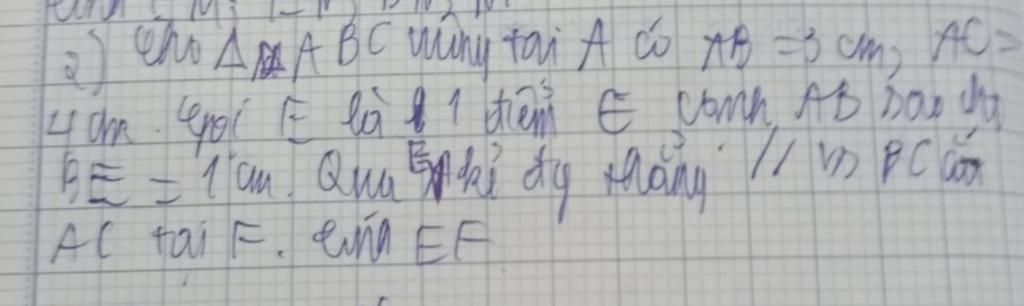 2) Cho Δ ABC vuông tại A có AB = 3 cm, AC =
4 cm. Gọi E là 1 điểm ∈ cạnh AB sao cho
BE = 1 cm. Qua E kẻ đg thẳng // vs BC cắt
AC tại F. Tính EF